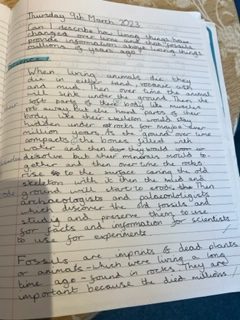 Thursday 9th March 2023
Can I describe how living things have
changed over time and that fossils
provide information about living things
millions of years ago?
When living animals die they
die in either land, volcanic ash
and mud. Then over time the animal
will sink under the ground. Then the
soft parts of their body like muscles
rot away but the hard parts of their
body like the skeleton would stay
hidden under rocks for many
million years. As the ground over time
compacts, the bones filled with
water and then they would
dissolve but their minerals would
gether and then over time the rocks
rise to the surface caring the old
skeleton with it then the mud and
ground will start to erode. then
archaeologists and palaeontologists
which discover the old fossils and
study and preserve them to use
for facts and information for scientists
to use for experiments.
Fossils are imprints of dead plants
or animals which were living a long
time ago - found in rocks. They are
important because the died millions